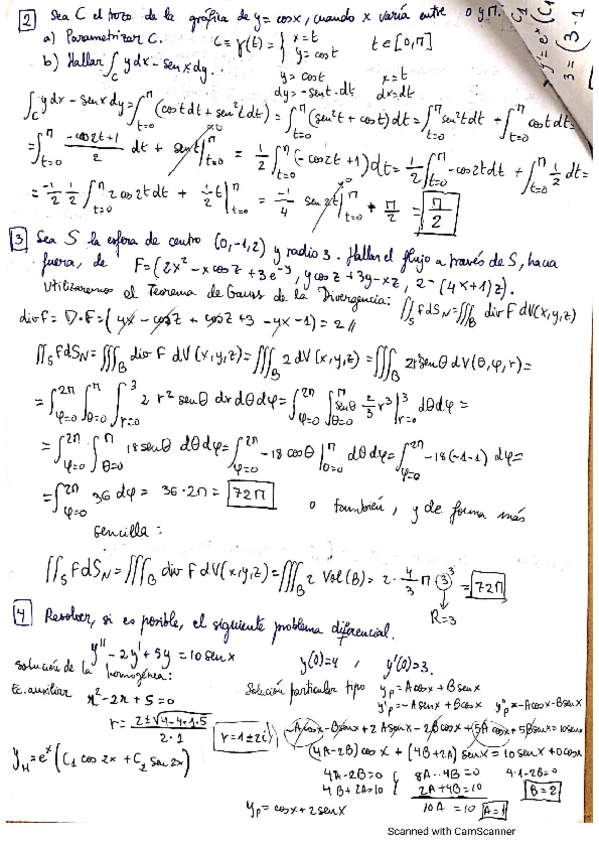 2 Sea C el trozo de la gráfica de y = cos x, cuando x varía entre 0 y π.
a) Parametrizar C. C ≡ γ(t) = { x = t, y = cos t t ∈ [0, π]
b) Hallar ∫_C y dx - sen x dy.
y = cos t x = t
dy = -sent · dt dx = dt
∫_C y dx - sen x dy = ∫_{t=0}^{π} (cos t dt + sen² t dt) = ∫_{t=0}^{π} (sen² t + cos t) dt = ∫_{t=0}^{π} sen² t dt + ∫_{t=0}^{π} cos t dt =
= ∫_{t=0}^{π} (-cos 2t + 1)/2 dt + sen t |_{t=0}^{π} = 1/2 ∫_{t=0}^{π} (-cos 2t + 1) dt = 1/2 ∫_{t=0}^{π} -cos 2t dt + ∫_{t=0}^{π} 1/2 dt =
= -1/2 1/2 ∫_{t=0}^{π} 2 cos 2t dt + 1/2 t |_{t=0}^{π} = -1/4 sen 2t |_{t=0}^{π} + π/2 = π/2
3 Sea S la esfera de centro (0, -1, 2) y radio 3. Hallar el flujo a través de S, hacia
fuera, de F = (2x² - x cos z + 3e^{-y}, y cos z + 3y - xz, 2 - (4x + 1) z).
Utilizaremos el Teorema de Gauss de la Divergencia: ∬_S F dS_N = ∭_B div F dV(x, y, z)
div F = ∇ · F = (4x - cos z + cos z + 3 - 4x - 1) = 2 //
∬_S F dS_N = ∭_B div F dV (x, y, z) = ∭_B 2 dV (x, y, z) = ∭_B 2r² sen θ dV(θ, φ, r) =
= ∫_{φ=0}^{2π} ∫_{θ=0}^{π} ∫_{r=0}^{3} 2 r² sen θ dr dθ dφ = ∫_{φ=0}^{2π} ∫_{θ=0}^{π} sen θ 2/3 r³ |_{r=0}^{3} dθ dφ =
= ∫_{φ=0}^{2π} ∫_{θ=0}^{π} 18 sen θ dθ dφ = ∫_{φ=0}^{2π} -18 cos θ |_{θ=0}^{π} dθ dφ = ∫_{φ=0}^{2π} -18 (-1-1) dφ =
= ∫_{φ=0}^{2π} 36 dφ = 36 · 2π = 72π o también, y de forma más
sencilla:
∬_S F dS_N = ∭_B div F dV(x, y, z) = ∭_B 2 Vol (B) = 2 · 4/3 π (3)³ = 72π
R = 3
4 Resolver, si es posible, el siguiente problema diferencial.
y'' - 2y' + 5y = 10 sen x y(0) = 4 , y'(0) = 3.
Solución de la homogénea: Solución particular tipo y_p = A cos x + B sen x
Ec. auxiliar r² - 2r + 5 = 0 y'_p = -A sen x + B cos x y''_p = -A cos x - B sen x
r = (2 ± √(4 - 4·1·5))/(2·1) r = 1 ± 2i -A cos x - B sen x + 2A sen x - 2B cos x + 5A cos x + 5B sen x = 10 sen x
y_H = e^x (C_1 cos 2x + C_2 sen 2x) (4A - 2B) cos x + (4B + 2A) sen x = 10 sen x + 0 cos x
4A - 2B = 0 8A - 4B = 0 4·1 - 2B = 0
4B + 2A = 10 2A + 4B = 10 B = 2
10A = 10 A = 1
y_p = cos x + 2 sen x
Scanned with CamScanner